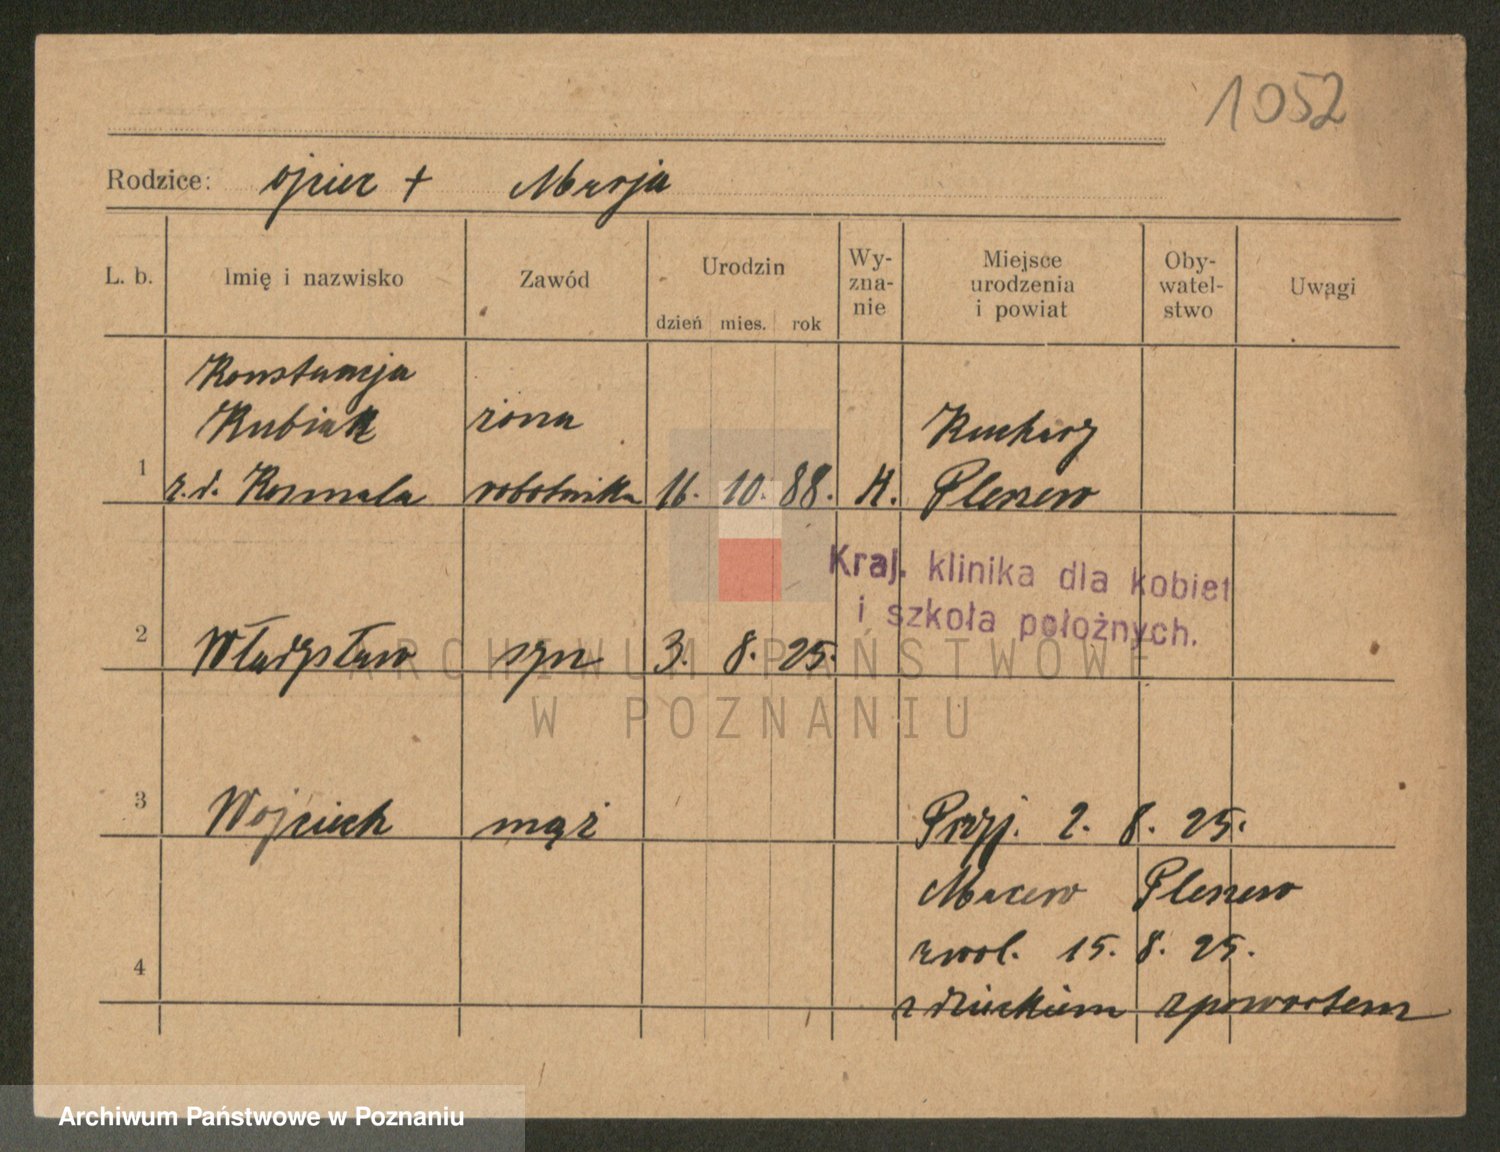 1052
Rodzice: ojciec + Marja
L. b. Imię i nazwisko Zawód Urodzin dzień mies. rok Wy-zna-nie Miejsce urodzenia i powiat Oby-watel-stwo Uwagi
Konstancja
Kubiak żona Kuchary
1 z. d. Kosmala robotnika 16. 10. 88. K. Pleszew
Kraj. klinika dla kobiet
i szkoła położnych.
2 Władysław syn 3. 8. 25.
ARCHIWUM PAŃSTWOWE
W POZNANIU
3 Wojciech mąż Przyj. 2. 8. 25.
Macew Pleszew
zwol. 15. 8. 25.
4
z dzieckiem zpowrotem
Archiwum Państwowe w Poznaniu